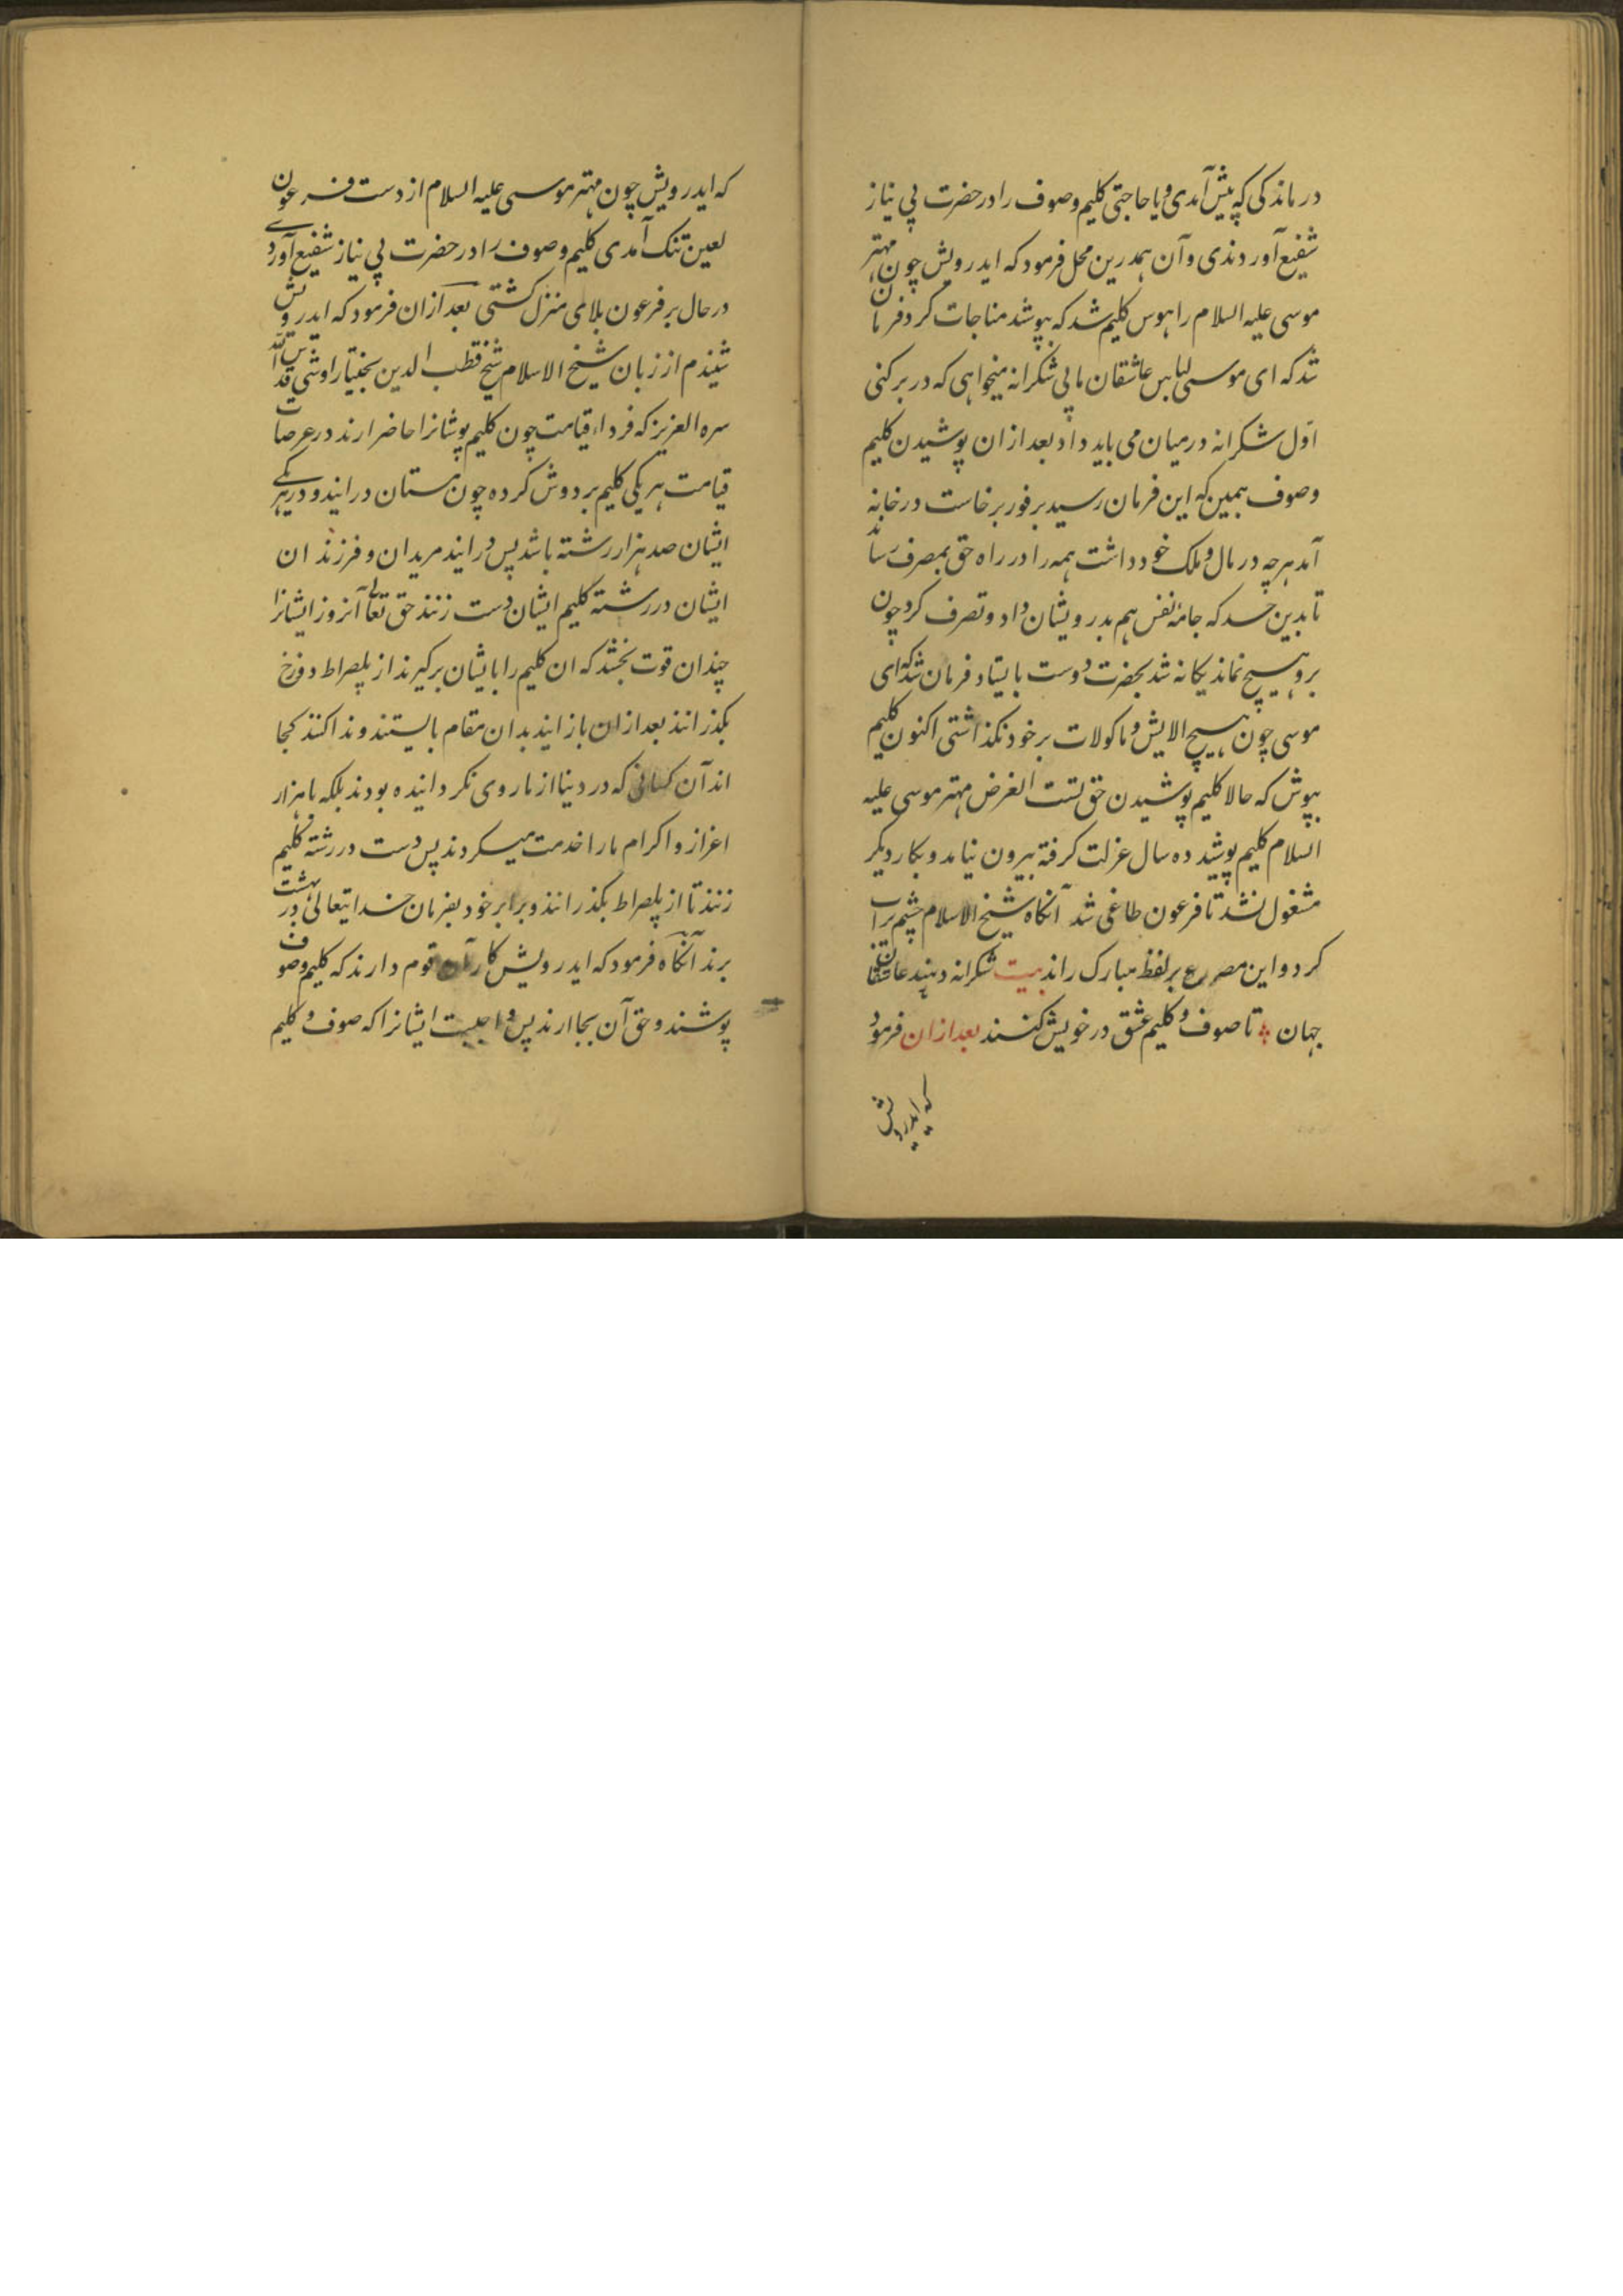 درماندکی که پیش آمدی و یا حاجتی کلیم و صوف را در حضرت بی نیاز
شفیع آوردندی و آن همدرین محل فرمود که ایدرویش چون مهتر
موسی علیه السلام را هوس کلیم شد که بپوشد مناجات کرد فرمان
شد که ای موسی لباس عاشقان ما بی شکرانه میخواهی که در بر کنی
اوّل شکرانه درمیان می باید داد بعد ازان پوشیدن کلیم
و صوف همین که این فرمان رسید بر فور برخاست در خانه
آمد هرچه در مال و ملک خود داشت همه را در راه حق بمصرف رساند
تا بدین حد که جامهٔ نفس هم بدرویشان داد و تصرف کرد چون
برو هیچ نماند یکانه شد بحضرت دوست بایستاد فرمان شد که ای
موسی چون هیچ الایش و ماکولات بر خود نکذاشتی اکنون کلیم
بپوش که حالا کلیم پوشیدن حق تست الغرض مهتر موسی علیه
السلام کلیم پوشید ده سال عزلت کرفته بیرون نیامد و بکار دیکر
مشغول نشد تا فرعون طاغی شد آنکاه شیخ الاسلام چشم پرآب
کرد و این مصرع بر لفظ مبارک راند بیت شکرانه دهند عاشقان
جهان تا صوف و کلیم عشق در خویش کنند بعد ازان فرمود
که ایدرویش
که ایدرویش چون مهتر موسی علیه السلام از دست فرعون
لعین تنک آمدی کلیم و صوف را در حضرت بی نیاز شفیع آوردے
در حال بر فرعون بلای منزل کشتی بعد ازان فرمود که ایدرویش
شنیدم از زبان شیخ الاسلام شیخ قطب الدین بختیار اوشی قدس الله
سره العزیز که فرداء قیامت چون کلیم پوشانرا حاضر ارند در عرصات
قیامت هر یکی کلیم بر دوش کرده چون مستان در ایند و در هریکے
ایشان صد هزار رشته باشد پس در ایند مریدان و فرزندان
ایشان در رشته کلیم ایشان دست زنند حق تعالی آنروز ایشانرا
چندان قوت بخشد که ان کلیم را با ایشان برکیرند از پلصراط دوزخ
بکذرانند بعد ازان باز ایند بدان مقام بایستند و ندا کنند کجا
اند آن کسانی که در دنیا از ما روی نکردانیده بودند بلکه با هزار
اعزاز و اکرام ما را خدمت میکردند پس دست در رشته کلیم
زنند تا از پلصراط بکذرانند و برابر خود بفرمان خدایتعالی در بهشت
برند آنکاه فرمود که ایدرویش کار آن قوم دارند که کلیم و صوف
پوشند و حق آن بجا ارند پس واجبست ایشانرا که صوف و کلیم